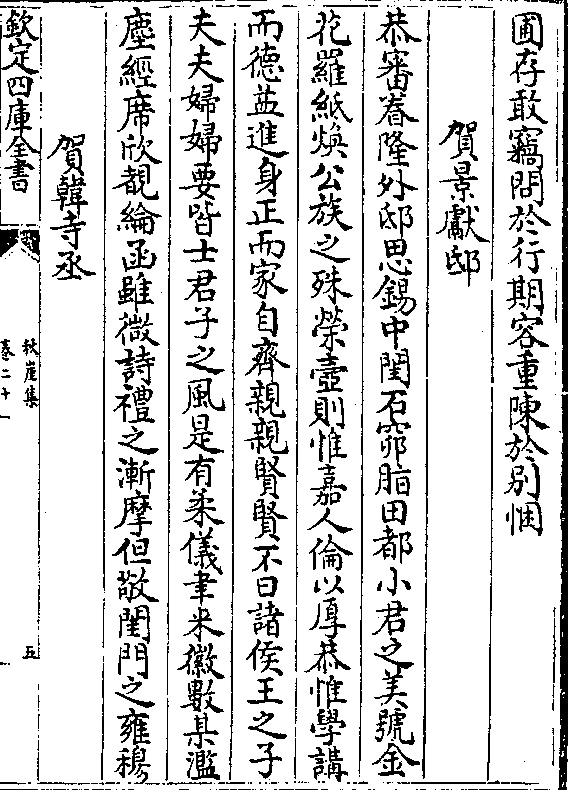 圃存敢竊問於行期容重陳於别悃
賀景獻邸
恭審眷隆外邸恩錫中閨石窌脂田都小君之美號金
花羅紙煥公族之殊榮壼則惟嘉人倫以厚恭惟學講
而德益進身正而家自齊親親賢賢不曰諸侯王之子
夫夫婦婦要皆士君子之風是有柔儀聿來徽數某濫
塵經席欣覩綸函雖微詩禮之漸摩但敬閨門之雍穆
賀韓寺丞
欽定四庫全書
秋崖集
卷二十一
五